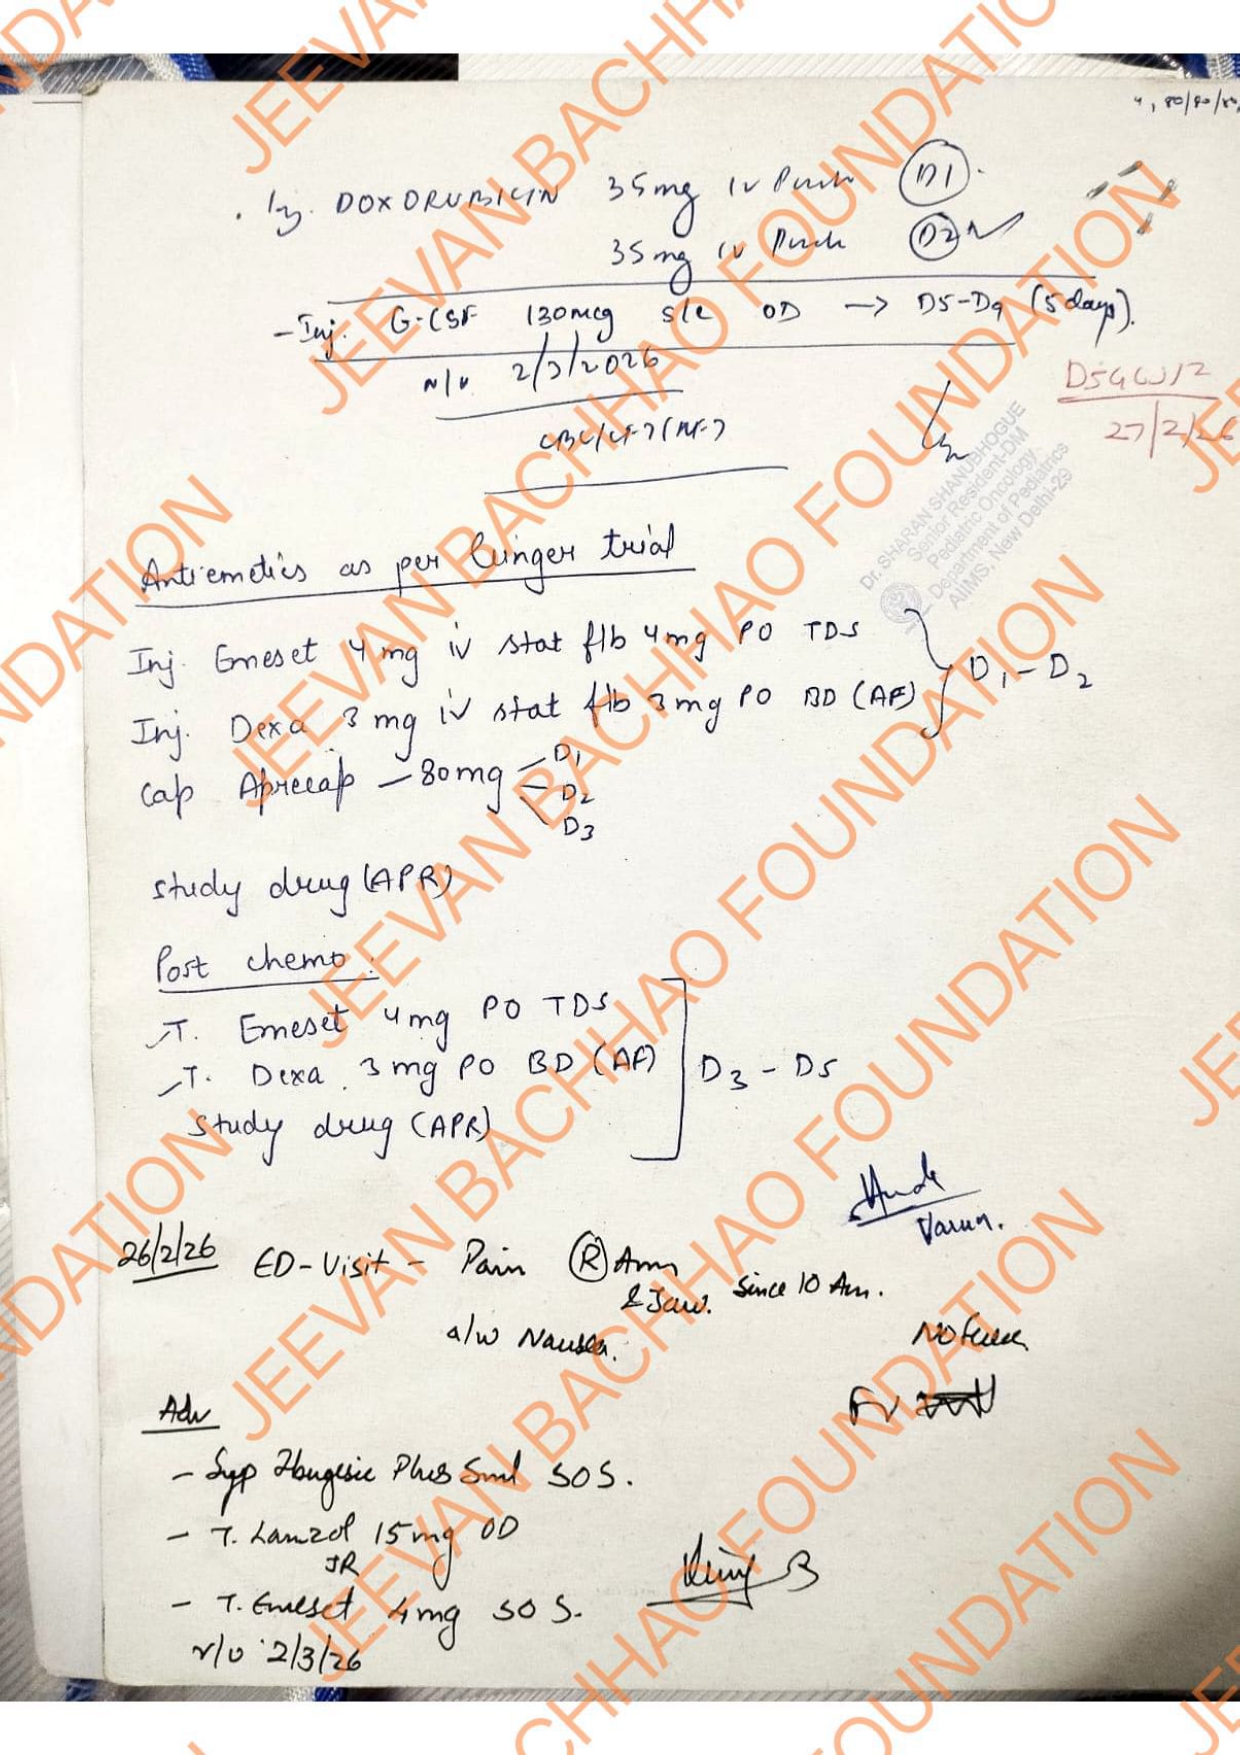 Inj. DOXORUBICIN 35mg IV Push D1
35mg IV Push D2
- Inj. G-CSF 130mcg s/c OD → D5-D9 (5 days).
2/3/2026
27/2/26
Dr. SHARAN SHANUBHOGUE
Senior Resident-DM
Pediatric Oncology
Department of Pediatrics
AIIMS, New Delhi-29
Antiemetics as per Ginger trial
Inj. Emeset 4mg iv stat f/b 4mg PO TDS
Inj. Dexa 3mg iv stat f/b 3mg PO BD (AF) D1-D2
Cap Aprecap - 80mg D1
D2
D3
study drug (APR)
Post chemo:
T. Emeset 4mg PO TDS
T. Dexa 3mg PO BD (AF) D3 - D5
Study drug (APR)
Varun.
26/2/26 ED-Visit - Pain R Arm
& Jaw. Since 10 Am.
a/w Nausea.
No fever
Adv
- Syp Ibugesic Plus 5ml SOS.
- T. Lanzol 15mg OD
JR
- T. Emeset 4mg SOS.
r/v 2/3/26
JEEVAN BACHHAO FOUNDATION